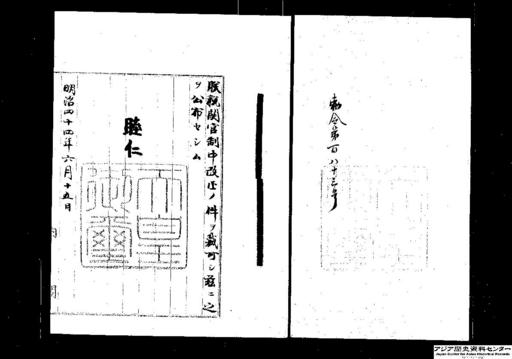 勅令第百八十三号
朕税関官制中改正ノ件ヲ裁可シ茲ニ之
ヲ公布セシム
睦仁
天皇御璽
明治四十四年六月十五日
内閣
アジア歴史資料センター
Japan Center for Asian Historical Records